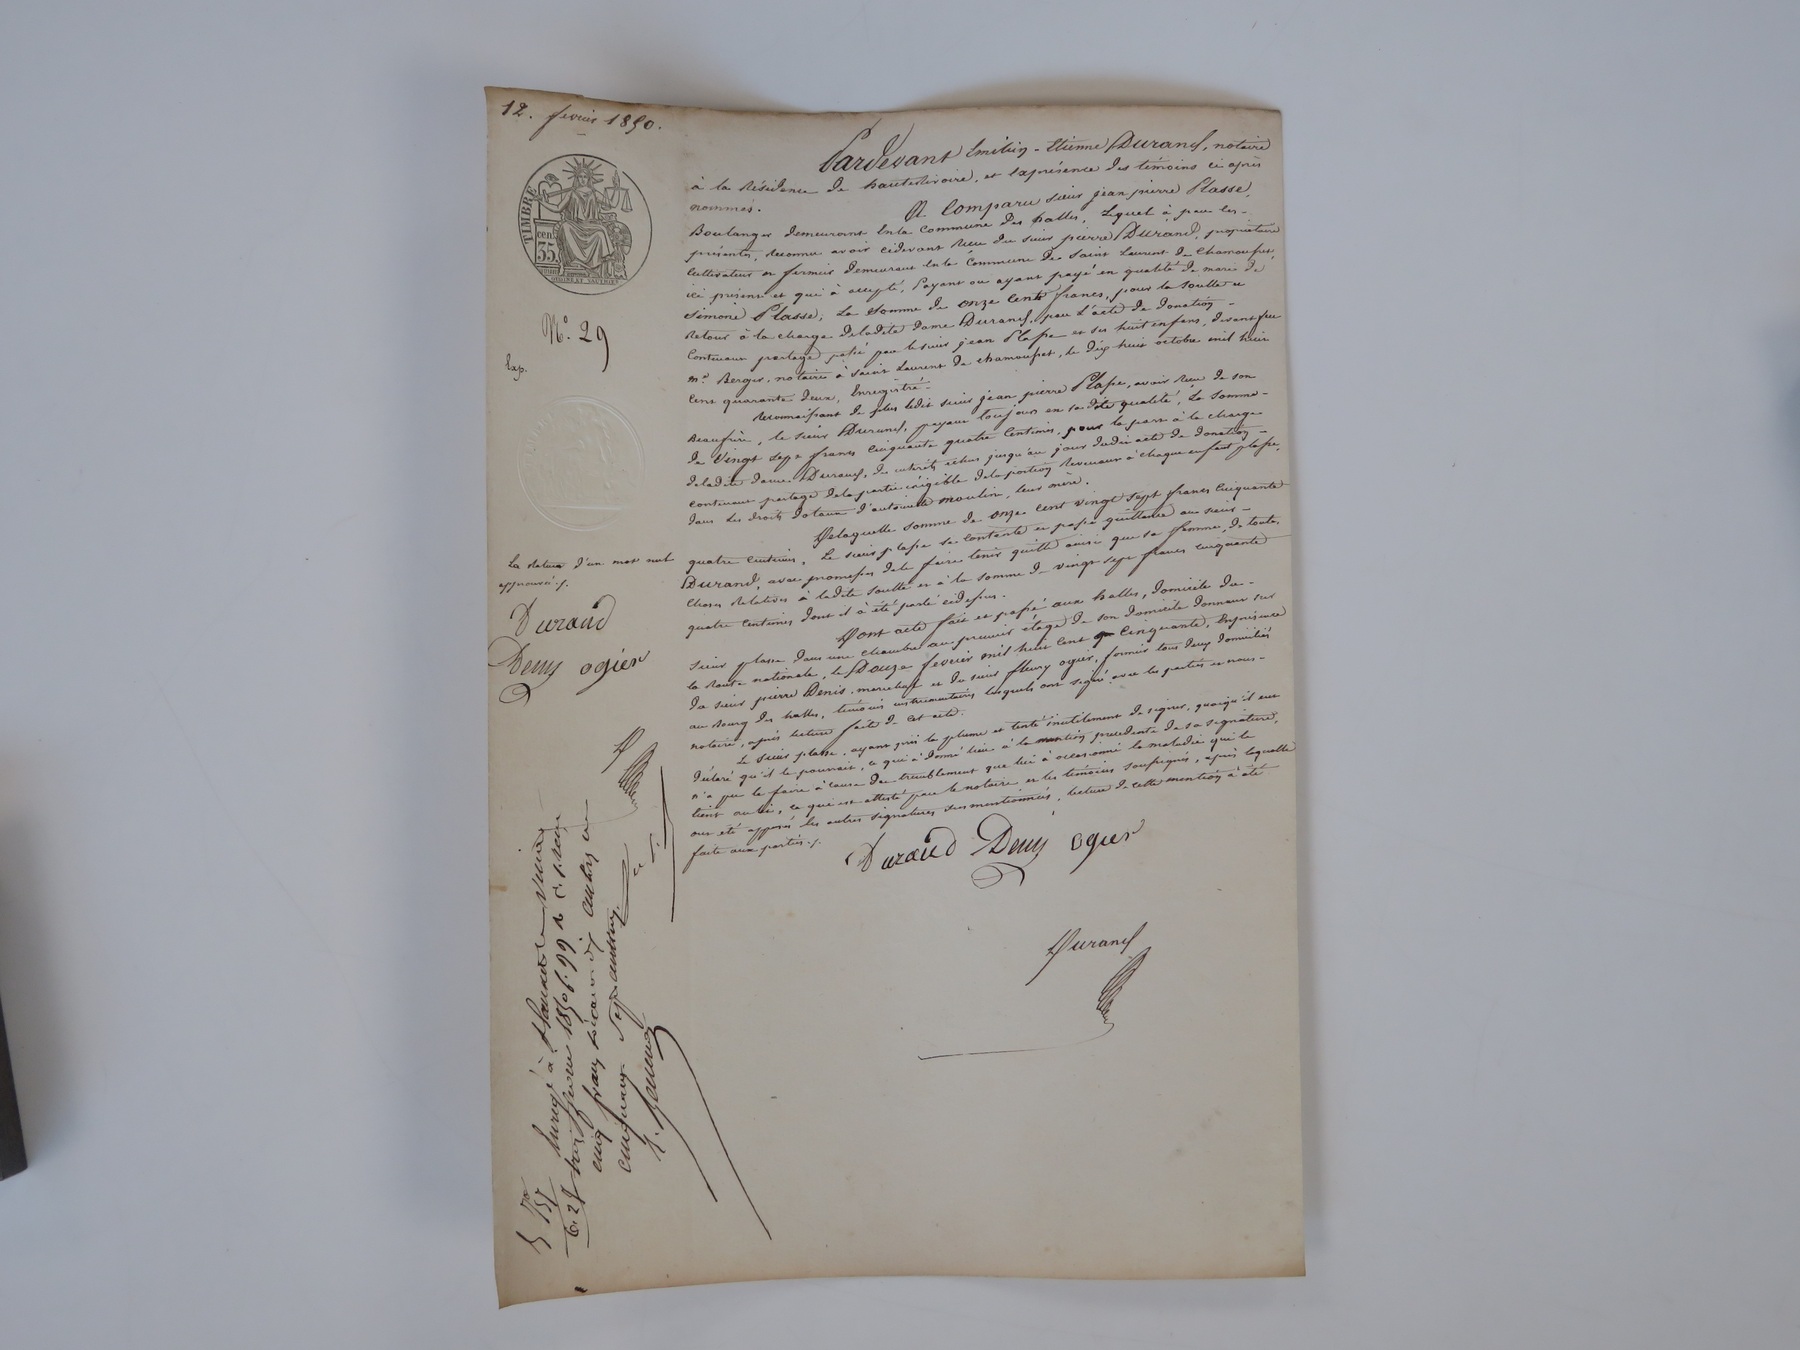 12. fevrier 1850.
TIMBRE
35 cen.
N.° 29
Exp.
La rature d'un mot nul
approuvée ./.
Durand
Denis ogier
Pardevant Emilien-Etienne Durand, notaire
à la Résidence de hauterivoire, et la présence des témoins ci après
nommés.
A Comparu sieur jean pierre Plasse,
Boulanger demeurant en la commune des halles, Lequel à par les-
présentes, Reconnu avoir cidevant Reçu du sieur pierre Durand, propriétaire
Cultivateur et fermier demeurant en la Commune de Saint Laurent de Chamousset,
ici présent et qui à accepté, Payant ou ayant payé en qualité de marie de
Simone Plasse, La Somme de onze cents francs, pour la Soulte et
Retour à la charge de ladite dame Durand, par l'acte de donation-
Contenant partage passé par le sieur jean Plasse et ses huit enfans, devant feu
m.e Berger, notaire à Saint Laurent de chamousset, le dix huit octobre mil huit
Cent quarante deux, Enregistré.
Reconnaissant de plus ledit sieur jean pierre Plasse, avoir Reçu de son
Beaufrère, le sieur Durand, payant toujours en sa dite qualité, La Somme-
de Vingt sept francs Cinquante quatre Centimes, pour la part à la charge
de ladite dame Durand, des intérêts échus jusqu'au jour dudit acte de donation-
contenant partage de la partie exigible de la portion Revenant à chaque enfant plasse,
dans les droits dotaux d'antoinette moulin, leur mère.
De laquelle somme de onze cent vingt sept francs Cinquante
quatre centimes, Le sieur plasse se contente et passe quittance au sieur-
Durand, avec promesse de le faire tenir quitte ainsi que sa femme, de toutes
choses Relatives à ladite soulte et à la somme de vingt sept francs cinquante
quatre centimes dont il à été parlé cidessus.
Dont acte fait et passé aux halles, domicile du-
sieur plasse dans une chambre au premier étage de son domicile donnant sur
la Route nationale, le Douze fevrier mil huit cent Cinquante, En présence
de sieur pierre Denis, marechal et de sieur fleury ogier, fermier tous deux domiciliés
au Bourg des halles, témoins instrumentaires lesquels ont signé avec les parties et nous-
notaire, après lecture faite de cet acte.
Le sieur plasse, ayant pris la plume et tenté inutilement de signer, quoiqu'il eut
déclaré qu'il le pouvait, ce qui à donné lieu à la mention precedente de sa signature,
n'a pu le faire à cause du tremblement que lui à occasionné la maladie qui le
tient au lit, ce qui est attesté par le notaire et les témoins soussignés, après laquelle
ont été apposés les autres signatures susmentionnées, lecture de cette mention à été
faite aux parties ./.
Durand Denis ogier
Durand